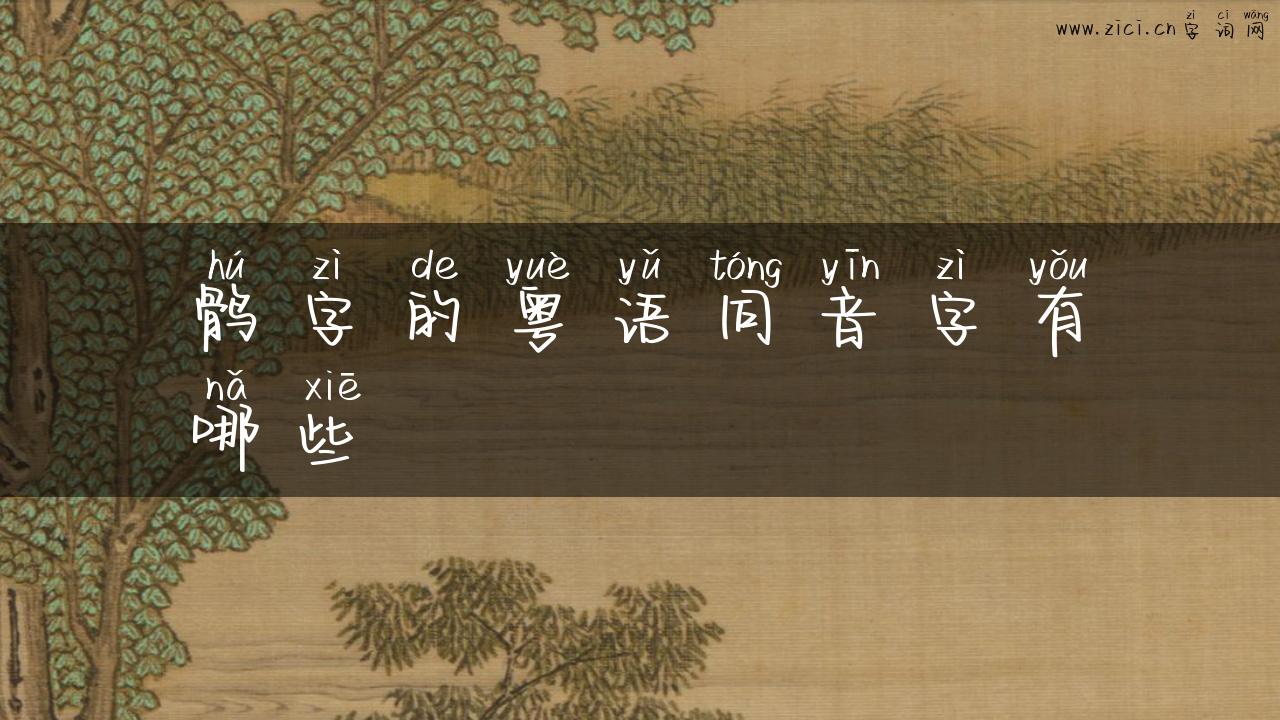 zì cí wǎng
www.zici.cn字词网
hú zì de yuè yǔ tóng yīn zì yǒu
鹘字的粤语同音字有
nǎ xiē
哪些